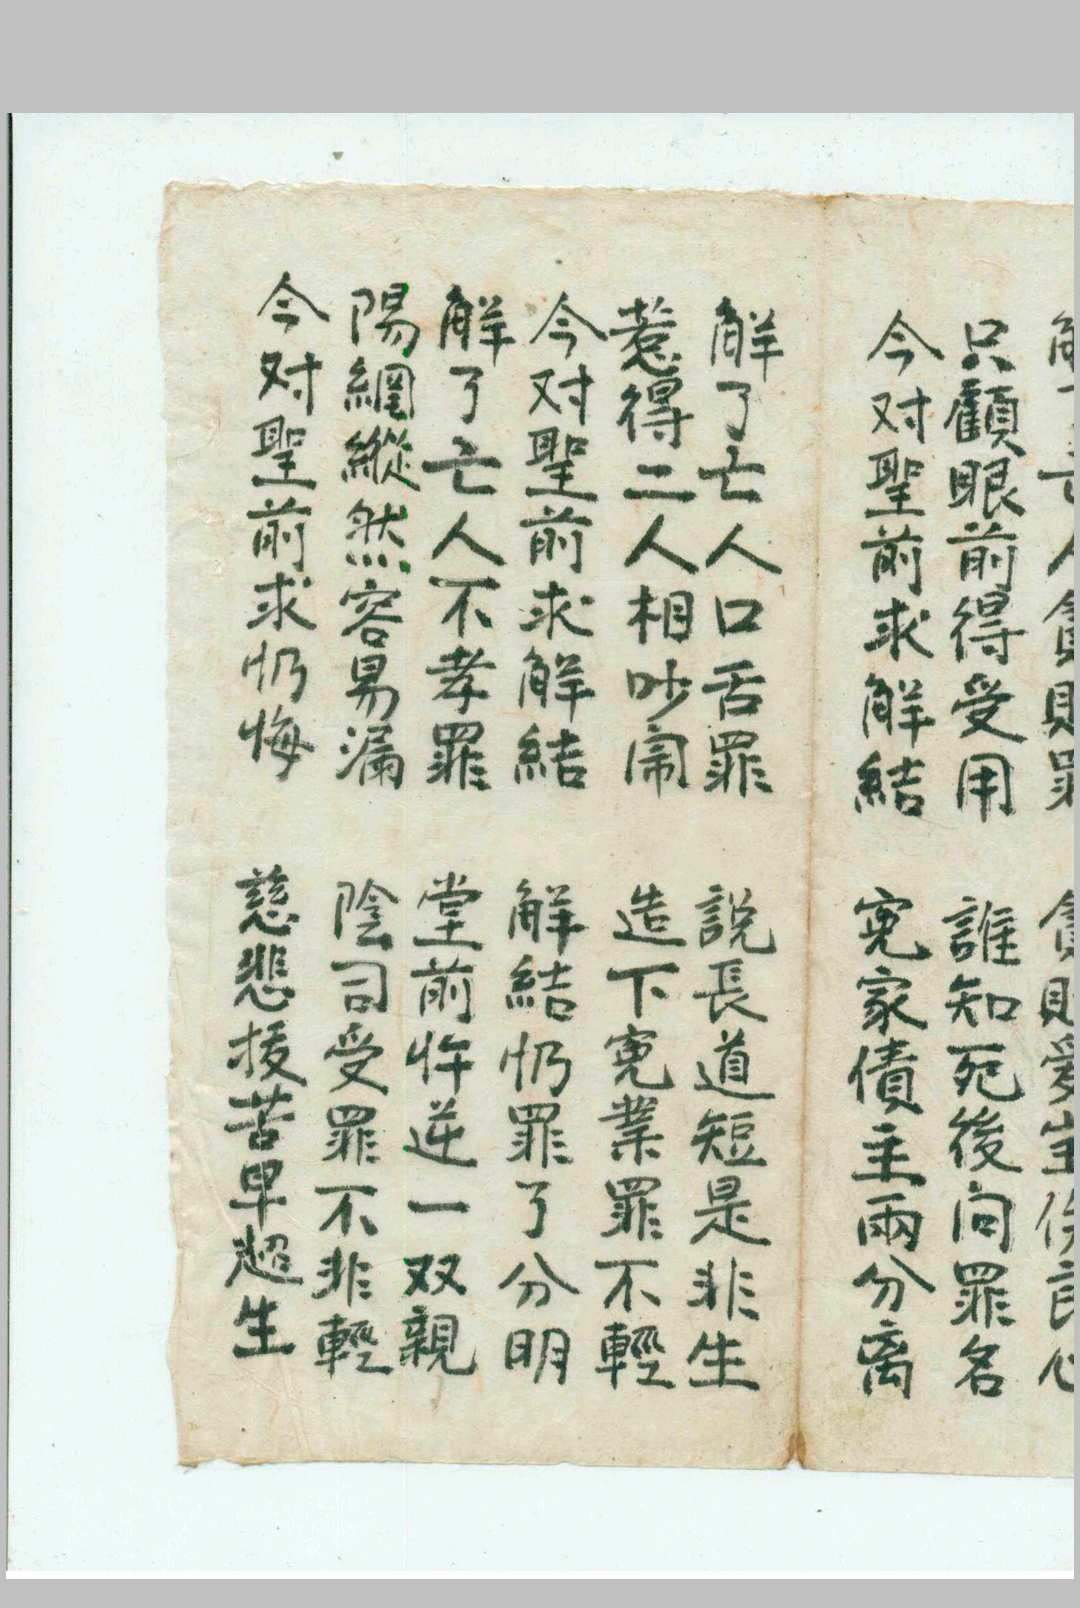 解了亡人貪財罪 貪財愛宝良心
只顧眼前得受用 誰知死後问罪名
今对聖前求解結 寃家債主兩分离
解了亡人口舌罪 說長道短是非生
惹得二人相吵閙 造下寃業罪不輕
今对聖前求解結 解結罪了分明
解了亡人不孝罪 堂前忤逆一双親
陽網縱然容易漏 陰司受罪不非輕
今对聖前求悔 慈悲拔苦早超生